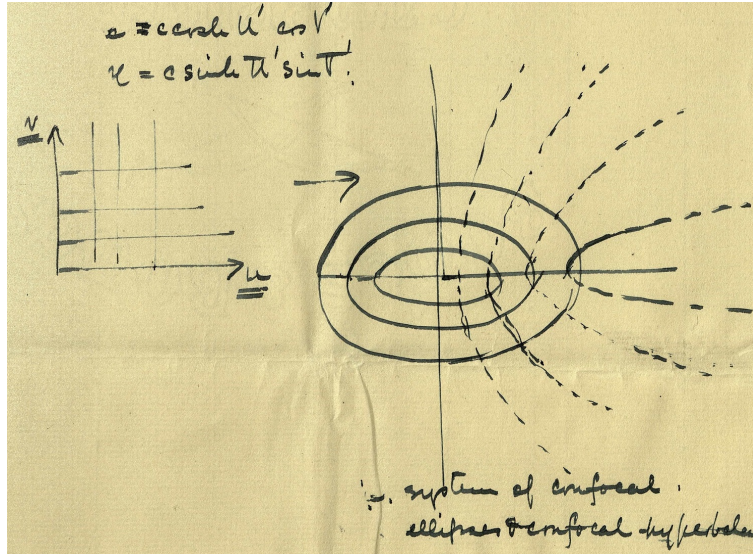 x = c cosh u cos v
y = c sinh u sin v.
v
u
∴ system of confocal
ellipses & confocal hyperbolae